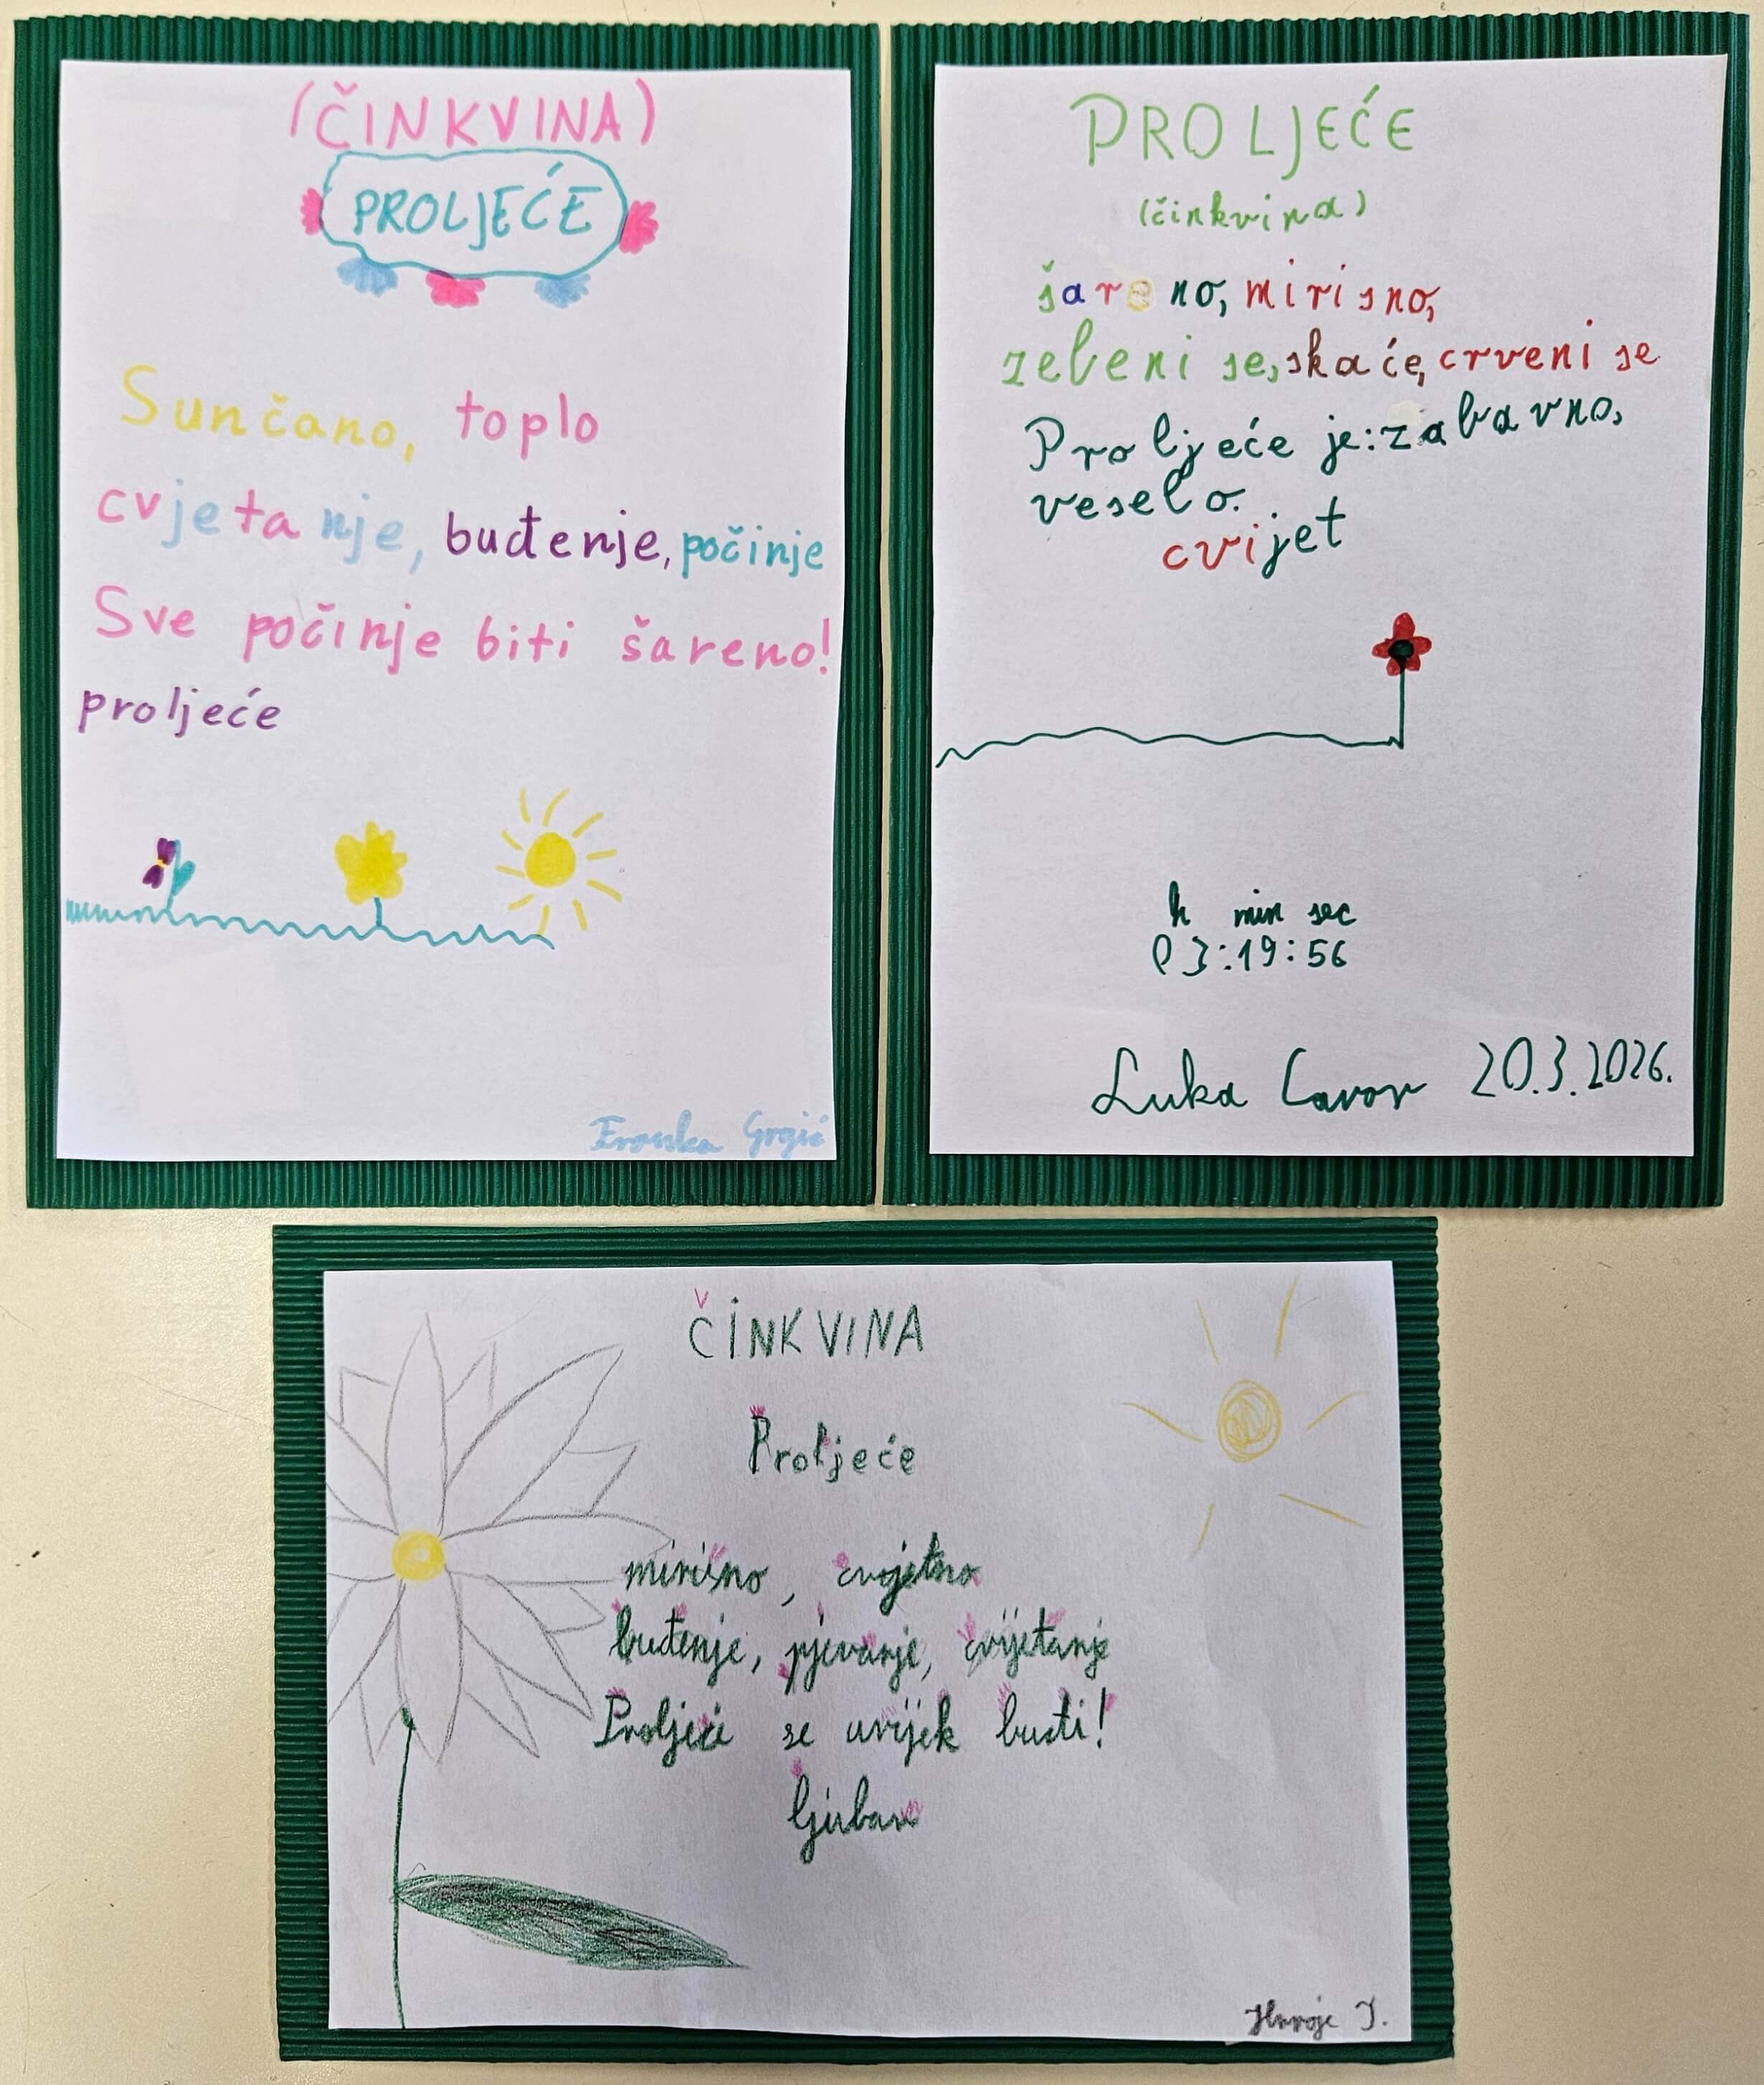 (ČINKVINA)
PROLJEĆE
Sunčano, toplo
cvjetanje, buđenje, počinje
Sve počinje biti šareno!
proljeće
Franka Grgić
PROLJEĆE
(činkvina)
šareno, mirisno,
zeleni se, skače, crveni se
Proljeće je: zabavno,
veselo.
cvijet
h min sec
03:19:56
Luka Cavor 20.3.2026.
ČINKVINA
Proljeće
mirisno, cvjetno
buđenje, pjevanje, cvijetanje
Proljeće se uvijek budi!
ljubav
Hrvoje J.